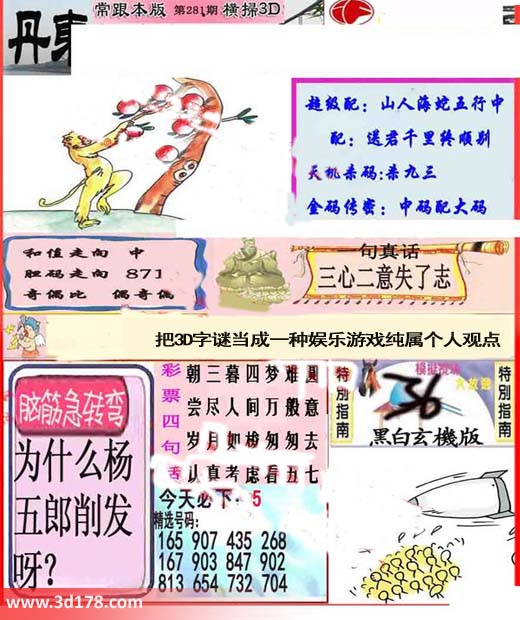 丹東
常跟本版 第281期 横掃3D
超级配：山人海蛇五行中
配：送君千里终顺别
天机杀码:杀九三
金码传密：中码配大码
和值走向 中
胆码走向 871
奇偶比 偶奇偶
一句真话
三心二意失了志
把3D字谜当成一种娱乐游戏纯属个人观点
脑筋急转弯
为什么杨
五郎削发
呀?
彩票四句
朝三暮四梦难圆
尝尽人间万般意
岁月如梭匆匆去
认真考虑看五七
今天必下: 5
精选号码:
165 907 435 268
167 903 847 902
813 654 732 704
特別指南
36
特別指南
黑白玄機版
www.3d178.com